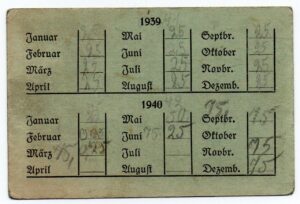 1939
Januar 25 Mai 25 Septbr. 25
Februar 25 Juni 25 Oktober 25
März 25 Juli 25 Novbr. 25
April 25 August 25 Dezemb. 25
1940
Januar Mai 50 Septbr. 75
Februar Juni 25 Oktober
März 75, Juli Novbr. 75
April August Dezemb. 75